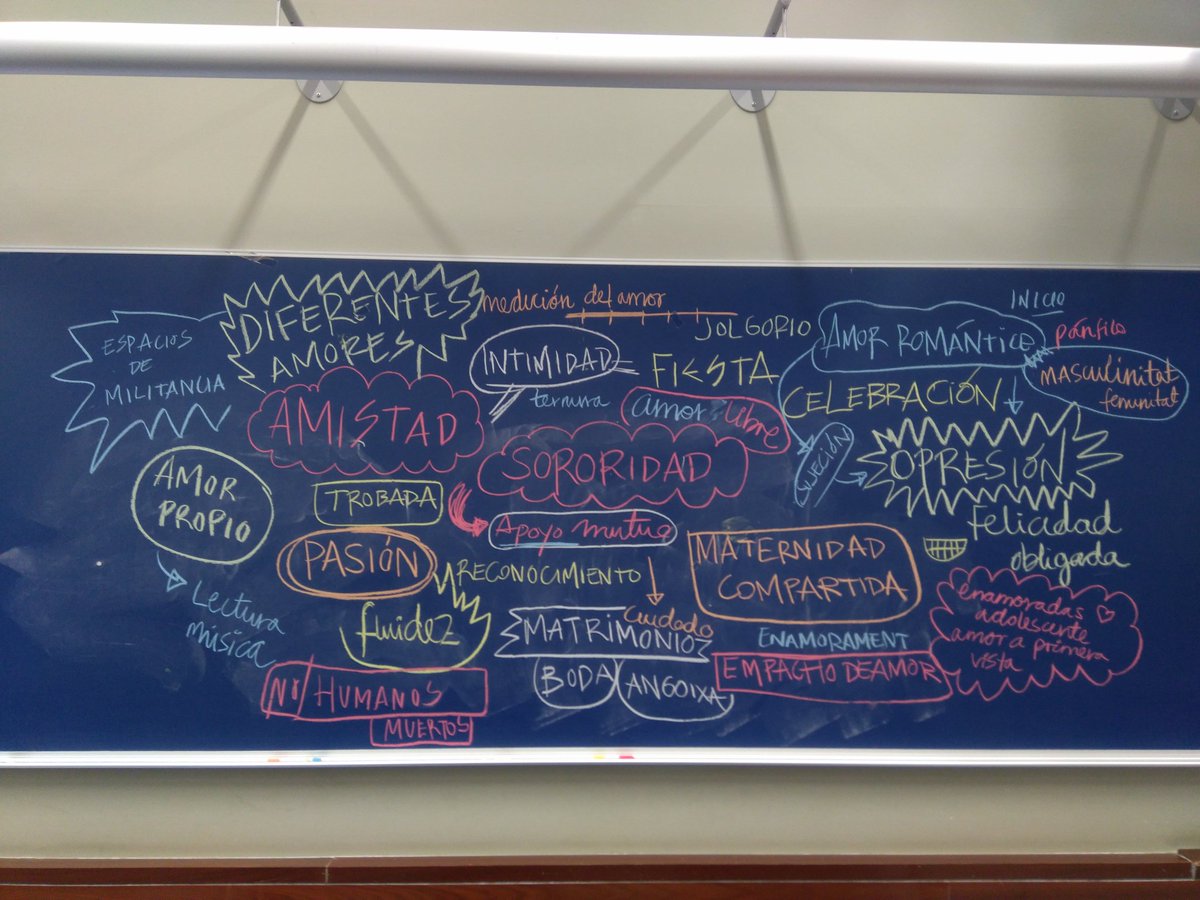 ESPACIOS
DE
MILITANCIA
DIFERENTES
AMORES
medición del amor
JOLGORIO
INTIMIDAD
FIESTA
ternura
amor libre
INICIO
AMOR ROMÁNTICO
pánfilo
MASCULINITAT
feminitat
CELEBRACIÓN
SUJECIÓN
OPRESIÓN
felicidad
obligada
AMISTAD
SORORIDAD
AMOR
PROPIO
TROBADA
Apoyo mutuo
PASIÓN
RECONOCIMIENTO
MATERNIDAD
COMPARTIDA
Lectura
música
fluidez
Cuidado
MATRIMONIO
ENAMORAMENT
enamoradas
adolescente
amor a primera
vista
NO/HUMANOS
MUERTOS
BODA
ANGOIXA
EMPACHO DE AMOR